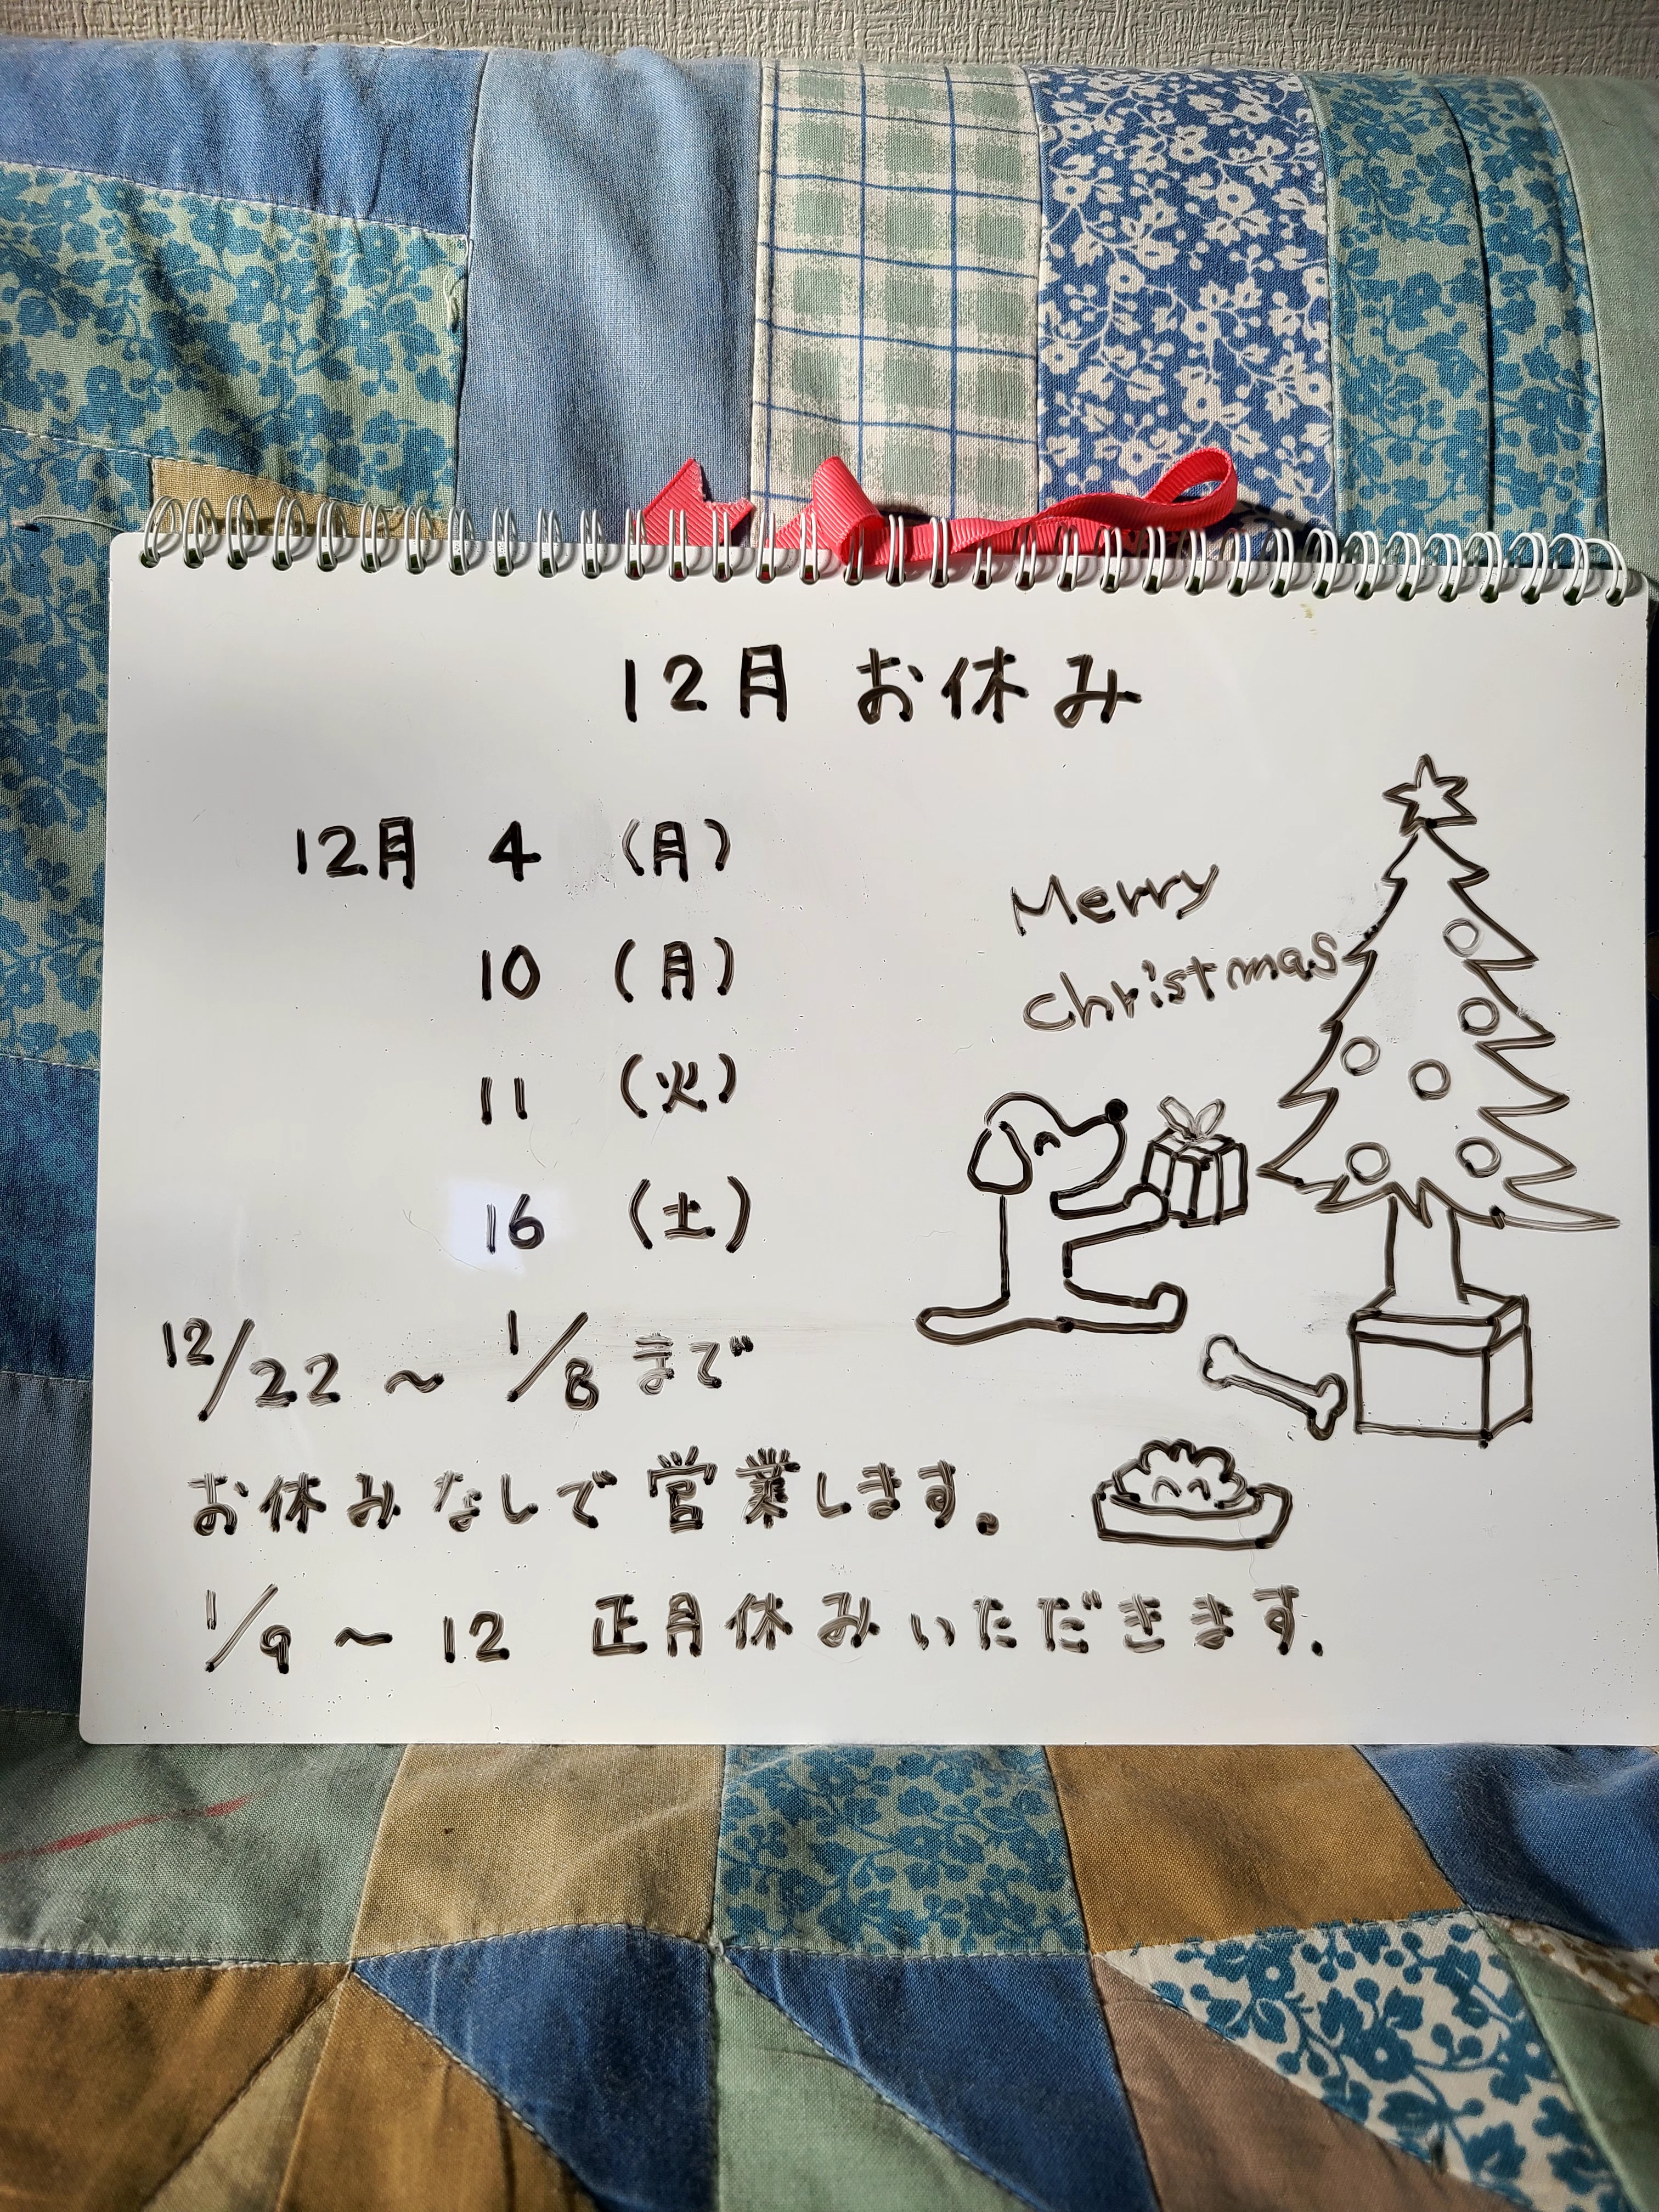 12月 お休み
12月 4 (月)
10 (月)
11 (火)
16 (土)
Merry
christmas
12/22 ～ 1/8 まで
お休みなしで営業します。
1/9 ～ 12 正月休みいただきます.